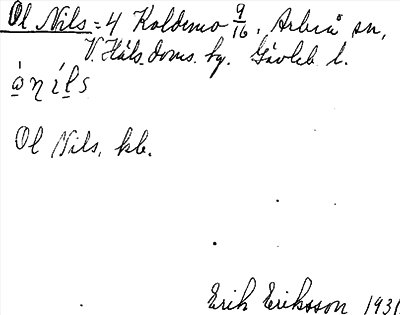 Ol Nils = 4 Koldemo 9/16, Arbrå sn,
V. Häls. doms. fg. Gävleb l.
Ol Nils, kb.
Erik Eriksson 1931